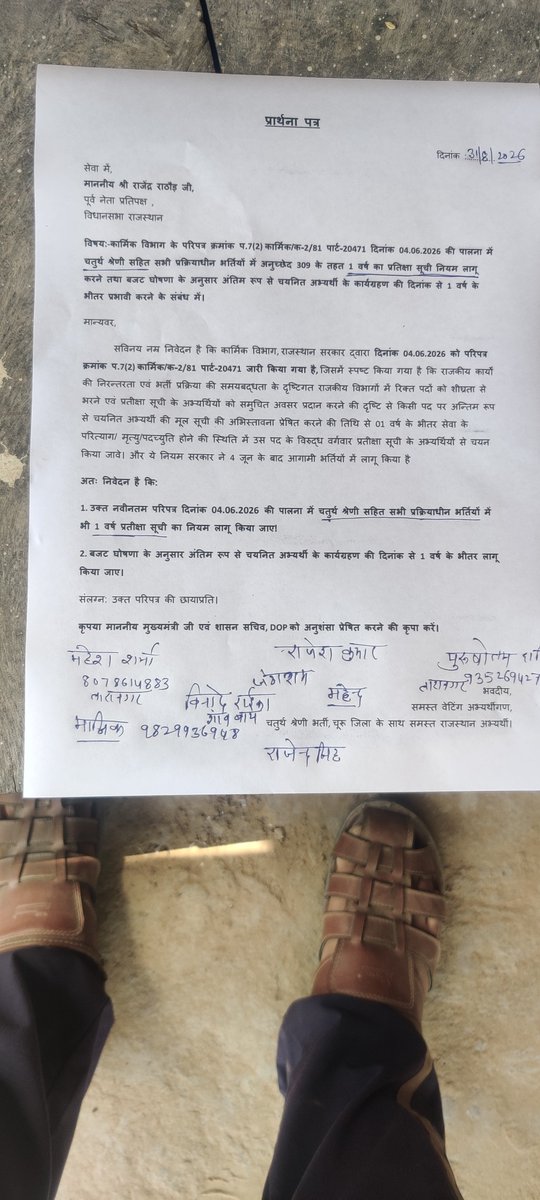 प्रार्थना पत्र
दिनांक :31/8/2026
सेवा में,
माननीय श्री राजेंद्र राठौड़ जी,
पूर्व नेता प्रतिपक्ष ,
विधानसभा राजस्थान
विषय:-कार्मिक विभाग के परिपत्र क्रमांक प.7(2) कार्मिक/क-2/81 पार्ट-20471 दिनांक 04.06.2026 की पालना में
चतुर्थ श्रेणी सहित सभी प्रक्रियाधीन भर्तियों में अनुच्छेद 309 के तहत 1 वर्ष का प्रतिक्षा सूची नियम लागू
करने तथा बजट घोषणा के अनुसार अंतिम रूप से चयनित अभ्यर्थी के कार्यग्रहण की दिनांक से 1 वर्ष के
भीतर प्रभावी करने के संबंध में।
मान्यवर,
सविनय नम्र निवेदन है कि कार्मिक विभाग, राजस्थान सरकार द्वारा दिनांक 04.06.2026 को परिपत्र
क्रमांक प.7(2) कार्मिक/क-2/81 पार्ट-20471 जारी किया गया है, जिसमें स्पष्ट किया गया है कि राजकीय कार्यो
की निरन्तरता एवं भर्ती प्रक्रिया की समयबद्धता के दृष्टिगत राजकीय विभागों में रिक्त पदों को शीघ्रता से
भरने एवं प्रतीक्षा सूची के अभ्यर्थियों को समुचित अवसर प्रदान करने की दृष्टि से किसी पद पर अन्तिम रूप
से चयनित अभ्यर्थी की मूल सूची की अभिस्तावना प्रेषित करने की तिथि से 01 वर्ष के भीतर सेवा के
परित्याग/ मृत्यु/पदच्युति होने की स्थिति में उस पद के विरुद्ध वर्गवार प्रतीक्षा सूची के अभ्यर्थियों से चयन
किया जावे। और ये नियम सरकार ने 4 जून के बाद आगामी भर्तियों में लागू किया है
अतः निवेदन है कि:
1. उक्त नवीनतम परिपत्र दिनांक 04.06.2026 की पालना में चतुर्थ श्रेणी सहित सभी प्रक्रियाधीन भर्तियों में
भी 1 वर्ष प्रतीक्षा सूची का नियम लागू किया जाए!
2. बजट घोषणा के अनुसार अंतिम रूप से चयनित अभ्यर्थी के कार्यग्रहण की दिनांक से 1 वर्ष के भीतर लागू
किया जाए।
संलग्न: उक्त परिपत्र की छायाप्रति।
कृपया माननीय मुख्यमंत्री जी एवं शासन सचिव, DOP को अनुशंसा प्रेषित करने की कृपा करें।
महेश शर्मा राजेश कुमार पुरूषोतम
8078614883 जेगाराम तारानगर 935269427
तारानगर विनोद महेन्द्र भवदीय,
समस्त वेटिंग अभ्यर्थीगण,
मानिक 9829936948 चतुर्थ श्रेणी भर्ती, चूरू जिला के साथ समस्त राजस्थान अभ्यर्थी।
राजेन्द्र सिंह